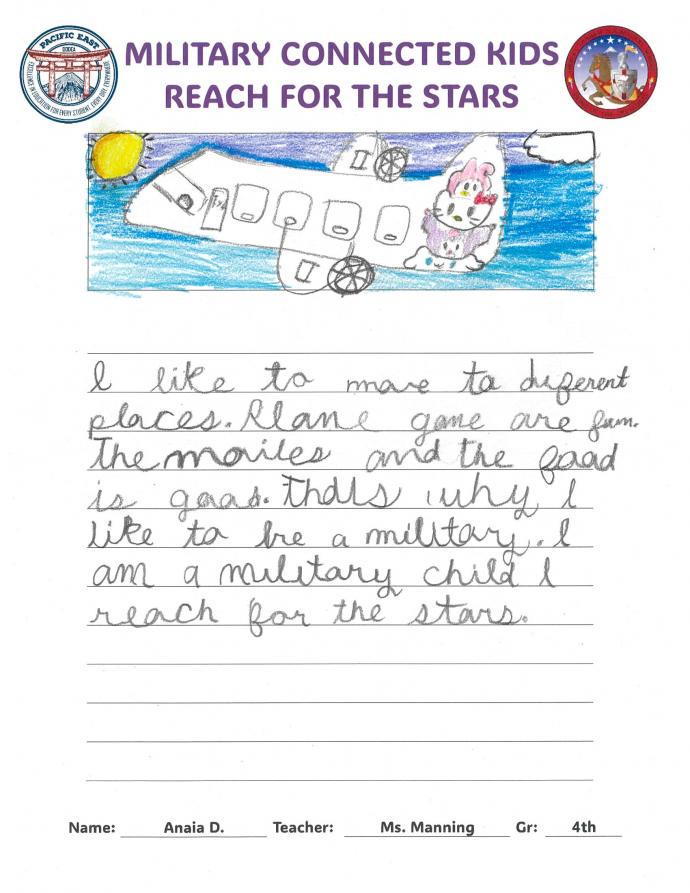 PACIFIC EAST
DODEA
EXCELLENCE IN EDUCATION FOR EVERY STUDENT, EVERY DAY, EVERYWHERE
MILITARY CONNECTED KIDS
REACH FOR THE STARS
I like to move to diferent
places. Plane game are fun.
The moviles and the food
is good. Thats why I
like to be a military. I
am a military child I
reach for the stars.
Name: Anaia D. Teacher: Ms. Manning Gr: 4th